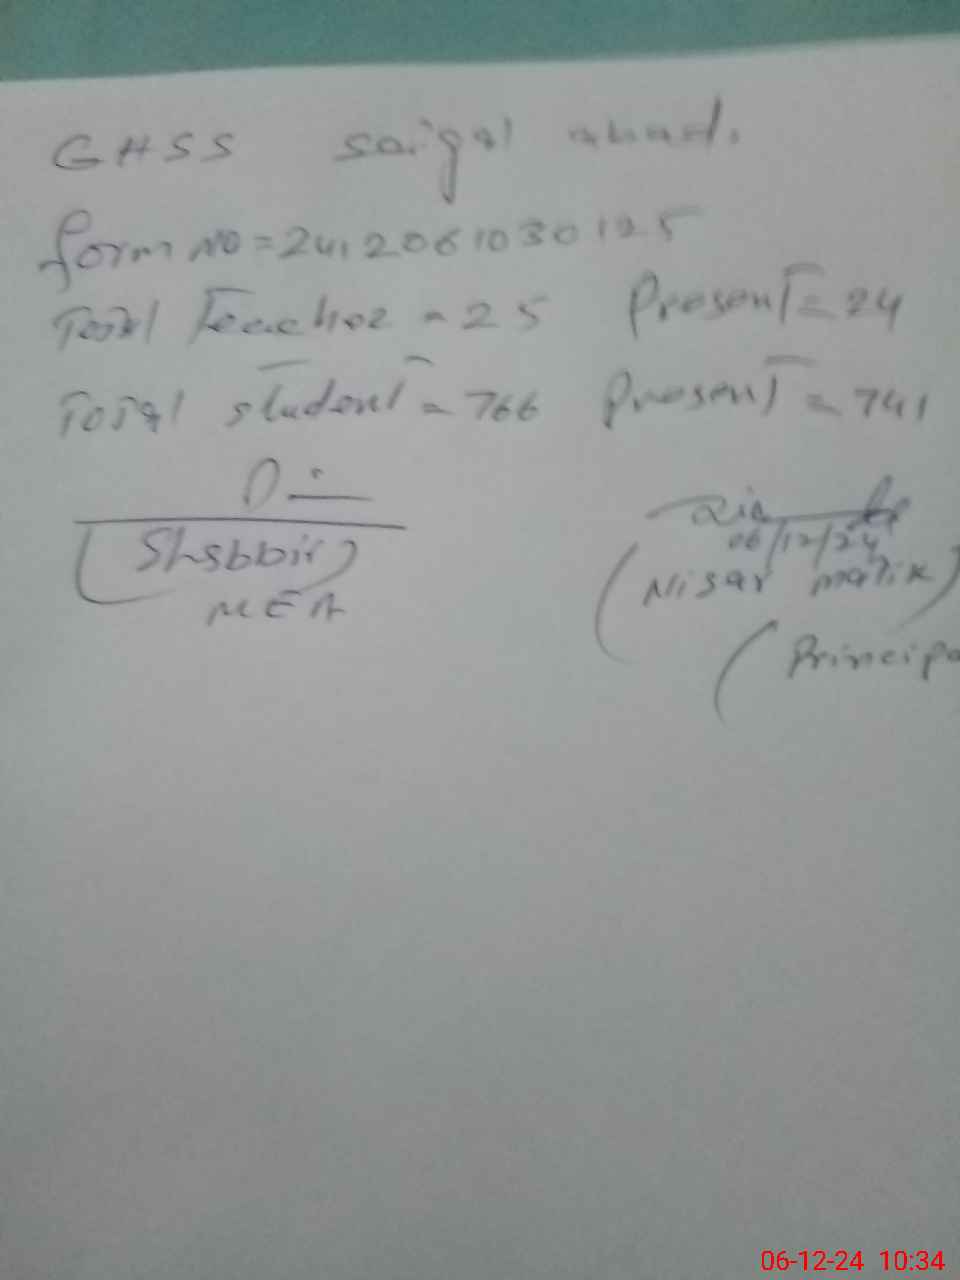 GHSS saigal abad.
form NO = 2412061030125
Total Teacher = 25 Present = 24
Total student = 766 Present = 741
(Shabbir)
MEA
06/12/24
(Nisar malik)
(Principa
06-12-24 10:34